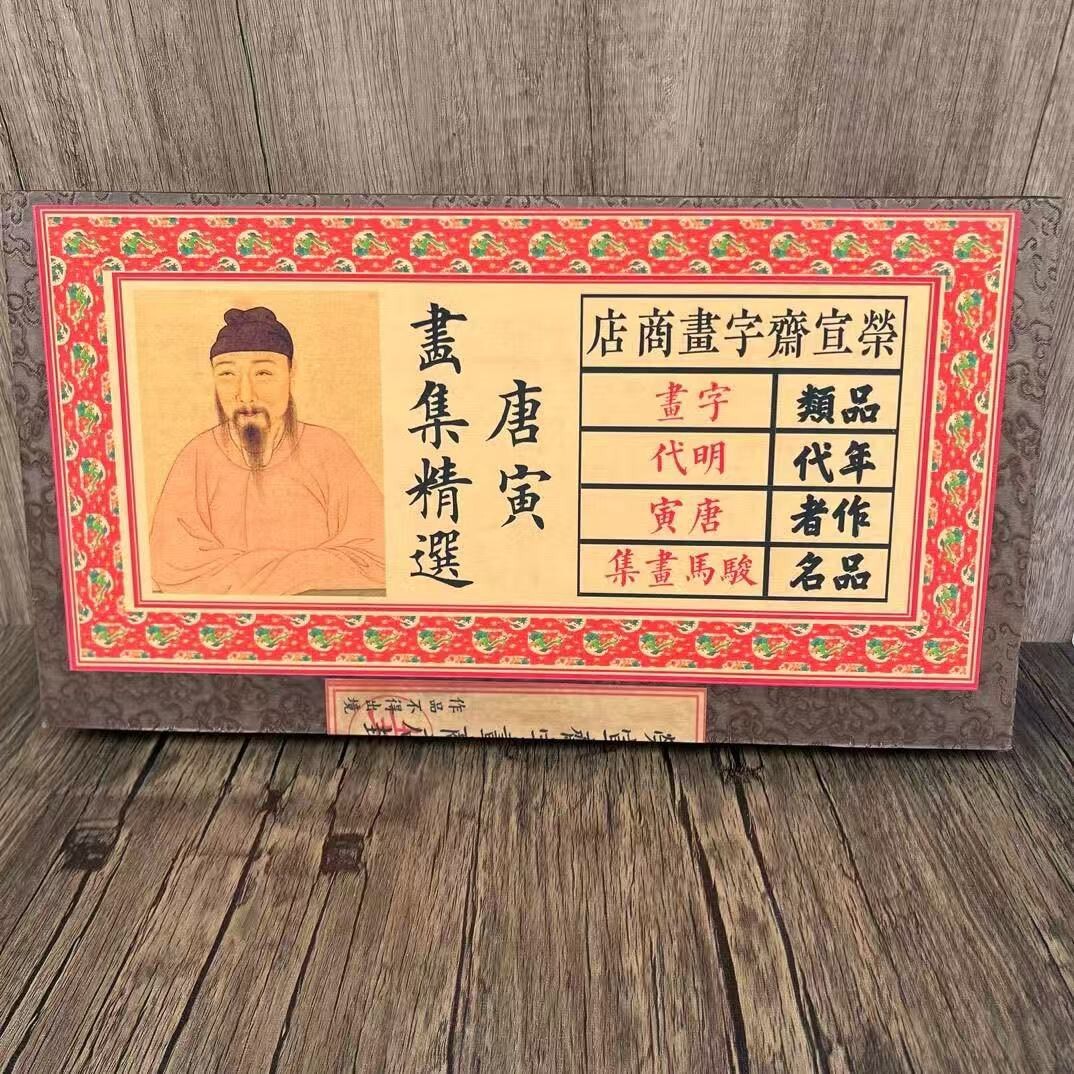 榮宣齋字畫商店
品類 字畫
年代 明代
作者 唐寅
品名 駿馬畫集
唐寅
畫集精選
作品不得出境